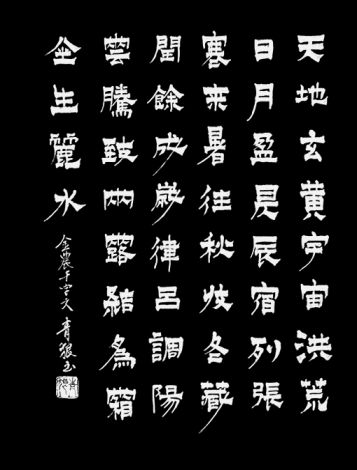 天地玄黄宇宙洪荒
日月盈昃辰宿列張
寒来暑往秋收冬藏
閏餘成歲律呂調陽
雲騰致雨露結為霜
金生麗水
金農千字文